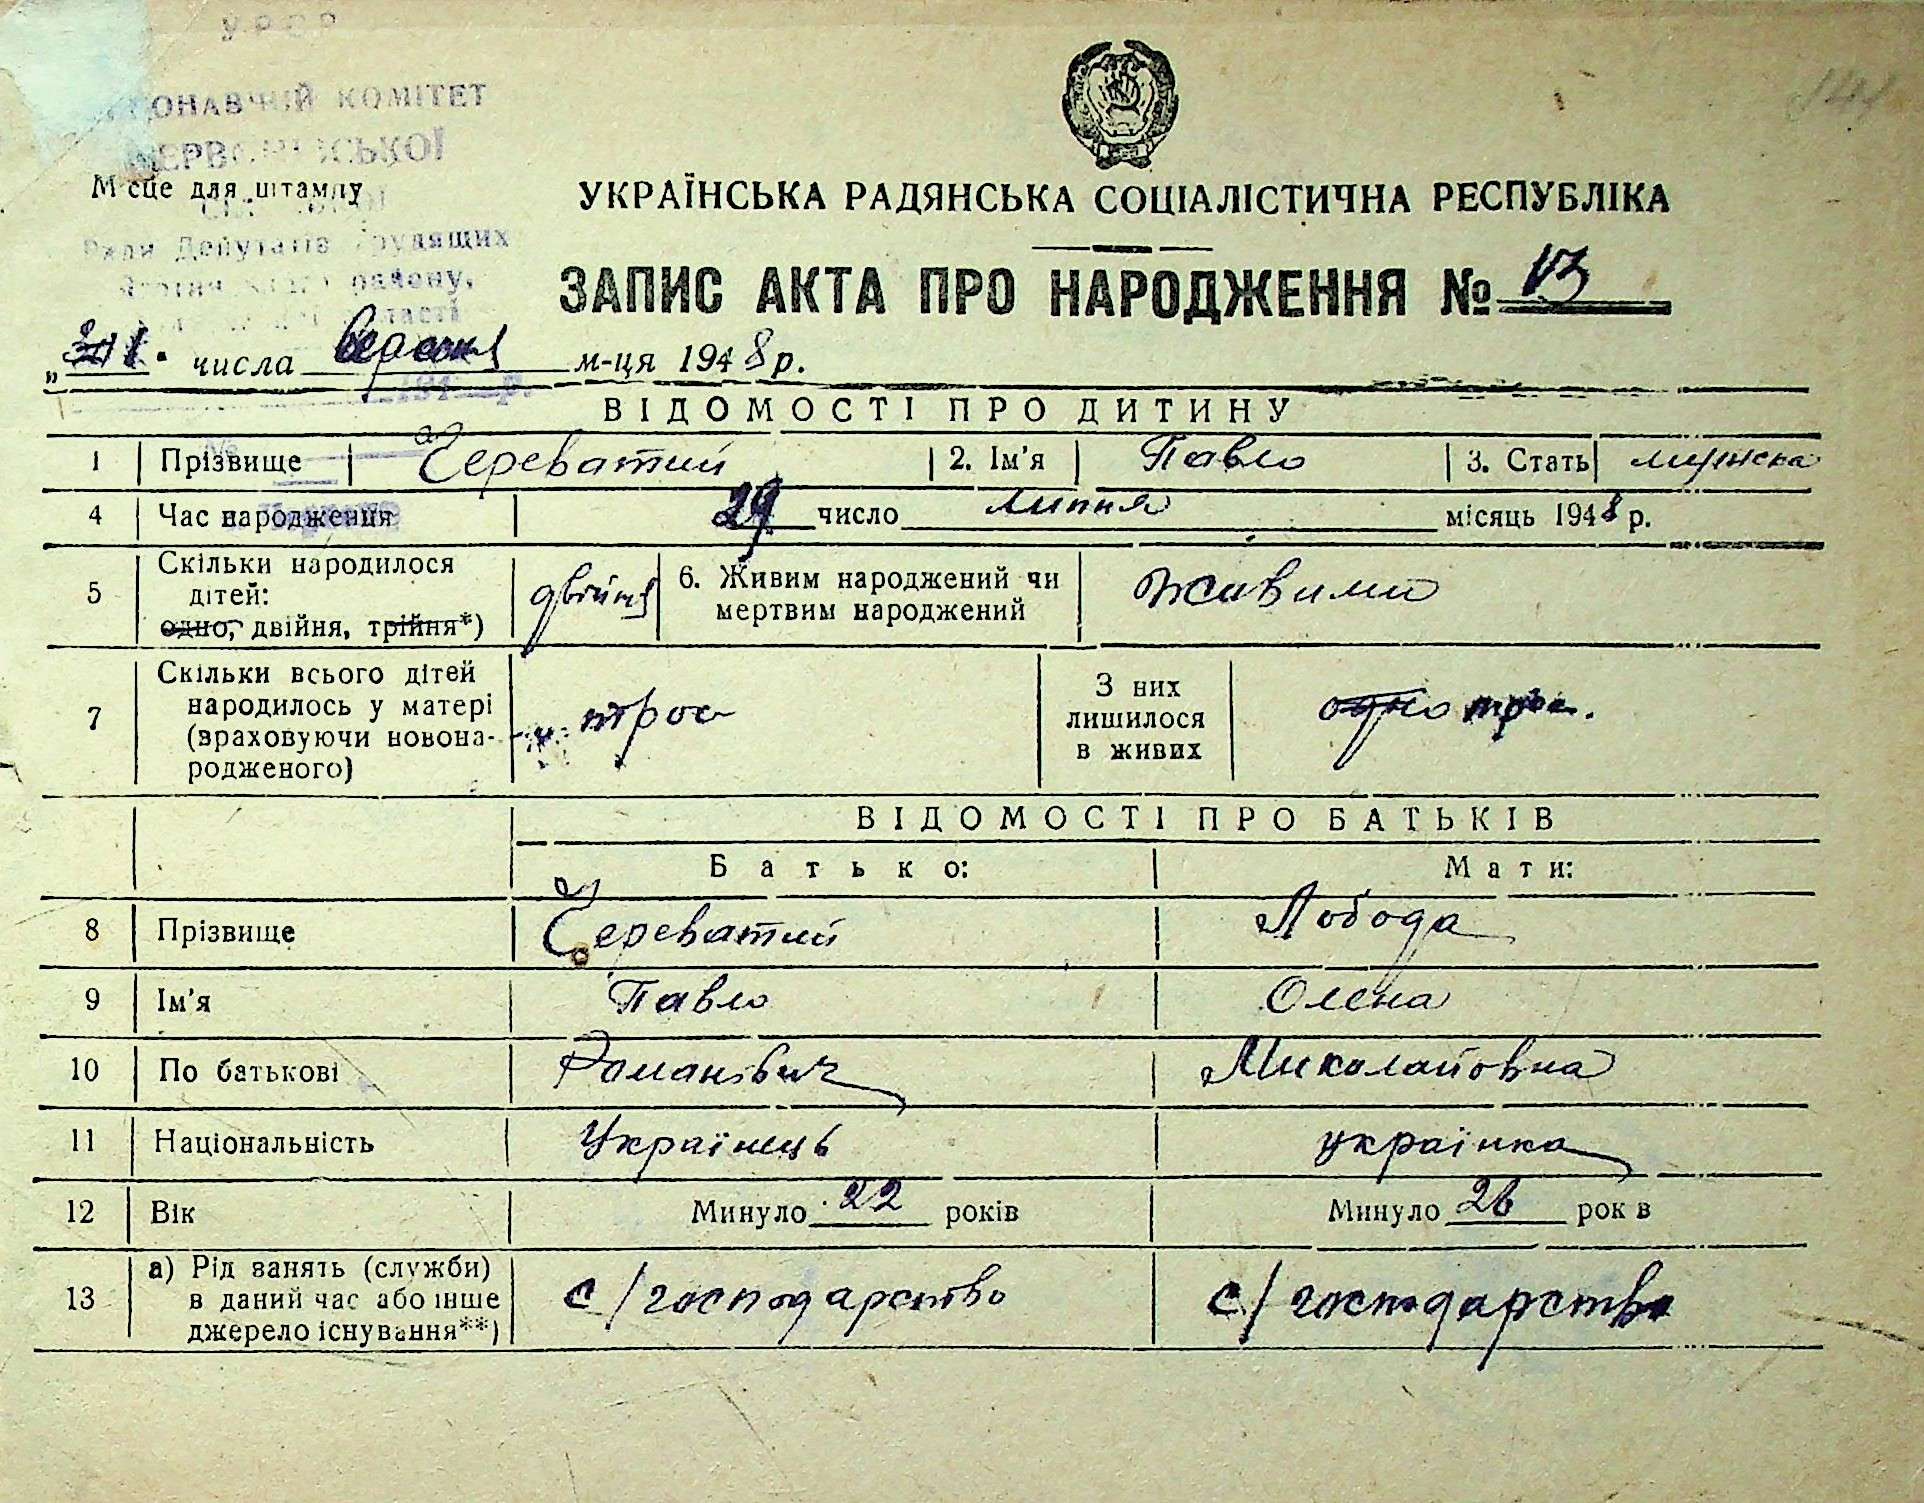 УРСР
КОМІТЕТ
Місце для штампу
Ради Депутатів Трудящих
району,
УКРАЇНСЬКА РАДЯНСЬКА СОЦІАЛІСТИЧНА РЕСПУБЛІКА
ЗАПИС АКТА ПРО НАРОДЖЕННЯ № 13
„ 1. числа вересня м-ця 1948 р.
ВІДОМОСТІ ПРО ДИТИНУ
1 Прізвище Череватий 2. Ім'я Павло 3. Стать мужська
4 Час народження 29 число липня місяць 1948 р.
5 Скільки народилося дітей: одно, двійня, трійня*) двійня 6. Живим народжений чи мертвим народжений живими
7 Скільки всього дітей народилось у матері (враховуючи новонародженого) троє З них лишилося в живих одно троє.
ВІДОМОСТІ ПРО БАТЬКІВ
Батько: Мати:
8 Прізвище Череватий Лобода
9 Ім'я Павло Олена
10 По батькові Романівич Миколайовна
11 Національність Українець українка
12 Вік Минуло 22 років Минуло 26 рок в
13 а) Рід занять (служби) в даний час або інше джерело існування**) с/господарство с/господарство